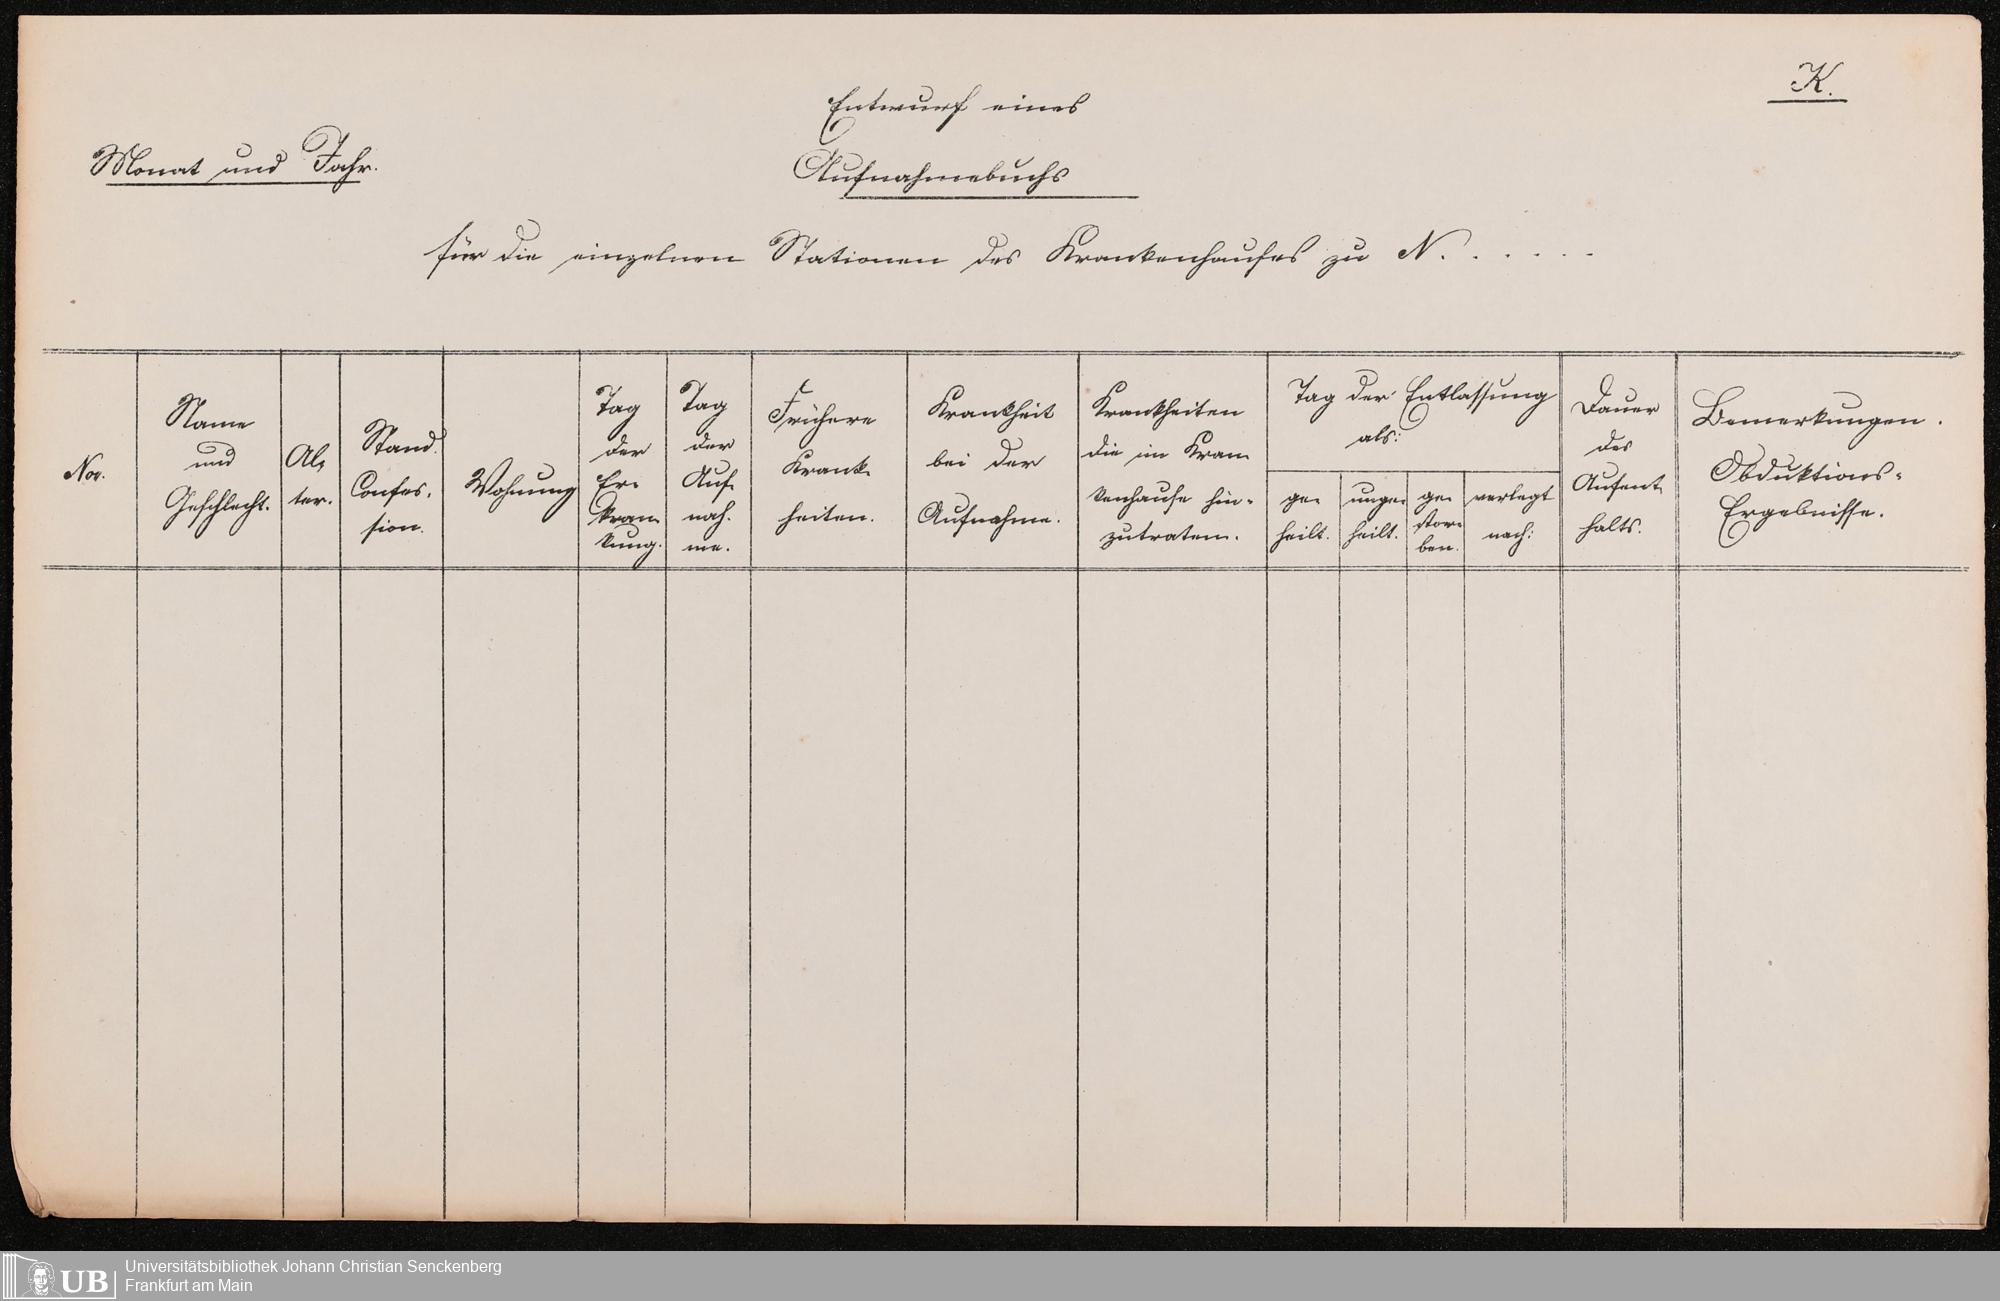 K.
Entwurf eines
Monat und Jahr.
Aufnahmebuchs
für die einzelnen Stationen des Krankenhauses zu N. . . . . .
Nor.
Name
und
Geschlecht.
Al-
ter.
Stand.
Confes-
sion.
Wohnung
Tag
der
Er-
kran-
kung.
Tag
der
Auf-
nah-
me.
Frühere
Krank-
heiten.
Krankheit
bei der
Aufnahme.
Krankheiten
die im Kran-
kenhause hin-
zutraten.
Tag der Entlassung
als:
ge-
heilt.
unge-
heilt.
ge-
stor-
ben.
verlegt
nach:
Dauer
des
Aufent-
halts.
Bemerkungen.
Obduktions-
Ergebnisse.
UB
Universitätsbibliothek Johann Christian Senckenberg
Frankfurt am Main